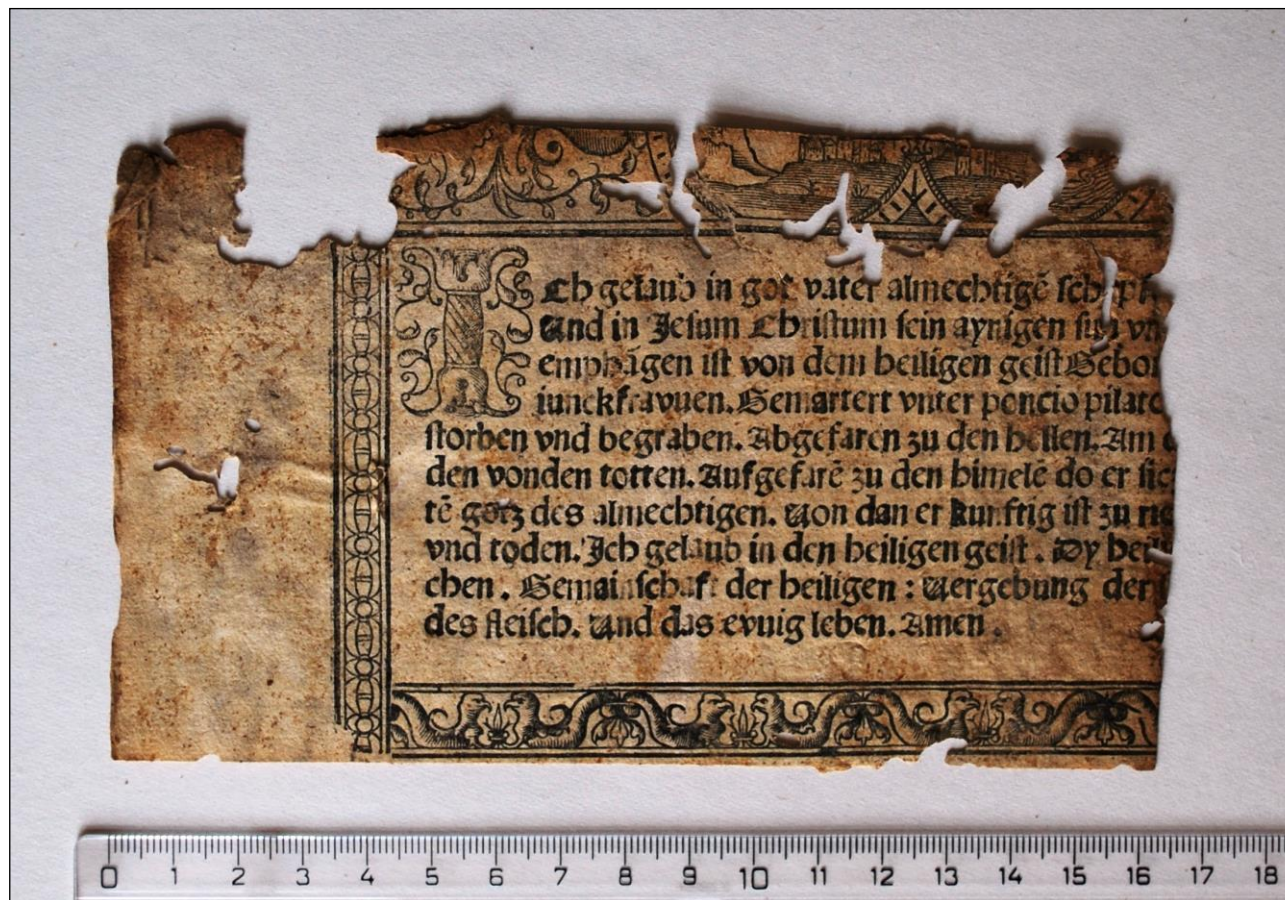 ICh gelaub in got vater almechtigẽ
Und in Jesum Christum sein aynigen sun
emphãgen ist von dem heiligen geist Gebor
iunckfravuen. Gemartert vnter poncio pilato
storben vnd begraben. Abgefaren zu den hellen. Am
den vonden totten. Aufgefarẽ zu den himelẽ do er
tẽ gotz des almechtigen. Von dan er kunftig ist zu
vnd toden. Ich gelaub in den heiligen geist. Dy
chen. Gemainschaft der heiligen: Vergebung der
des fleisch. Und das evuig leben. Amen.
0 1 2 3 4 5 6 7 8 9 10 11 12 13 14 15 16 17 18